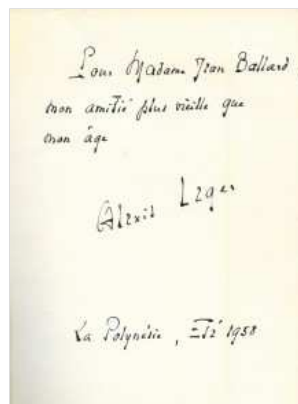 Pour Madame Jean Ballard
mon amitié plus vieille que
mon âge
Alexis Leger
La Polynésie, Eté 1958